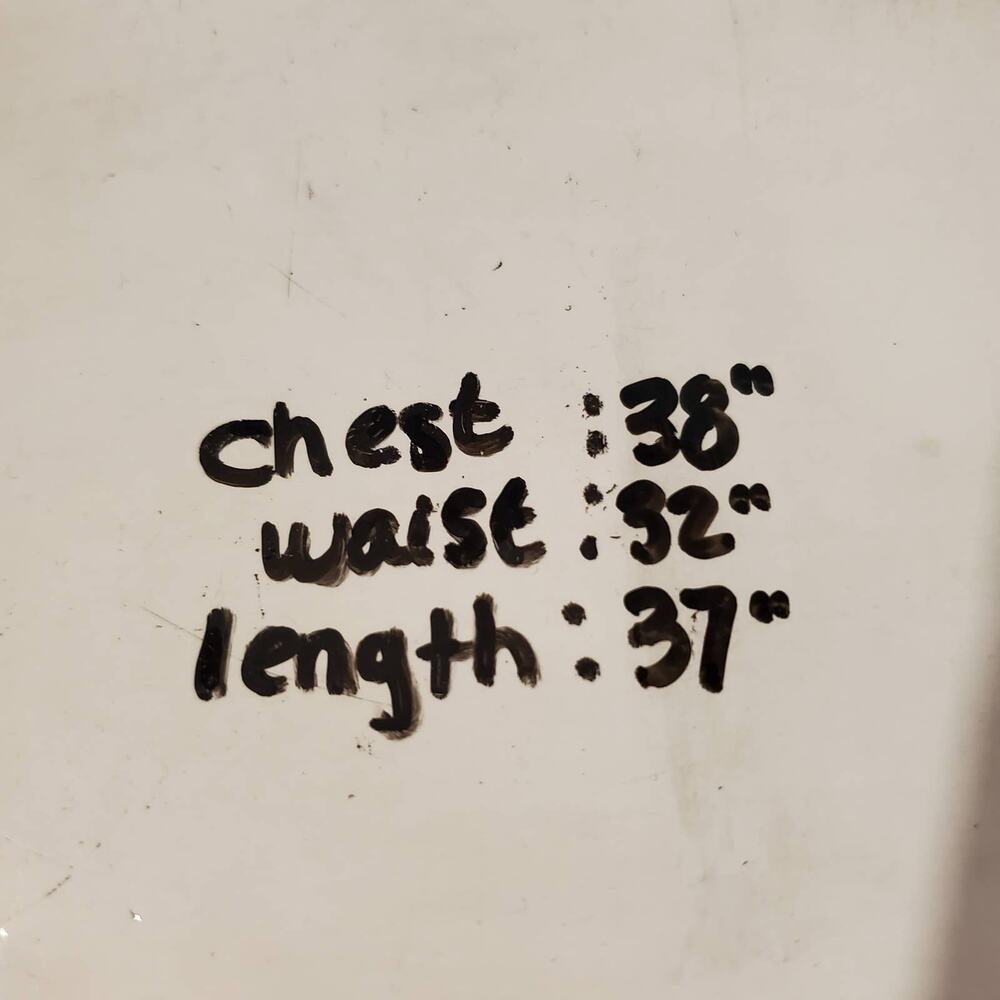 chest : 38"
waist : 32"
length : 37"